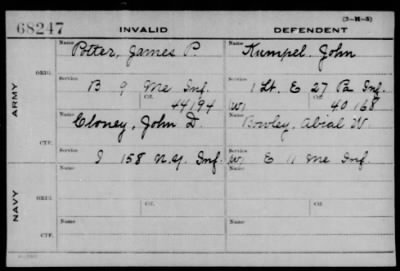 (3-M-5)
68247 INVALID DEFENDENT
Name Potter, James P. Name Kumpel. John
ARMY
ORIG.
Service B 9 Me Inf. Service 1 Lt. E 27 Pa Inf.
Ctf. 44194 W Ctf. 40168
Name Cloney, John D. Name Bowley, Abial W.
CTF.
Service I 158 N.Y. Inf. Service W. E 11 Me Inf.
NAVY
Name Name
ORIG.
Service Ctf. Service Ctf.
Name Name
CTF.
Service Service